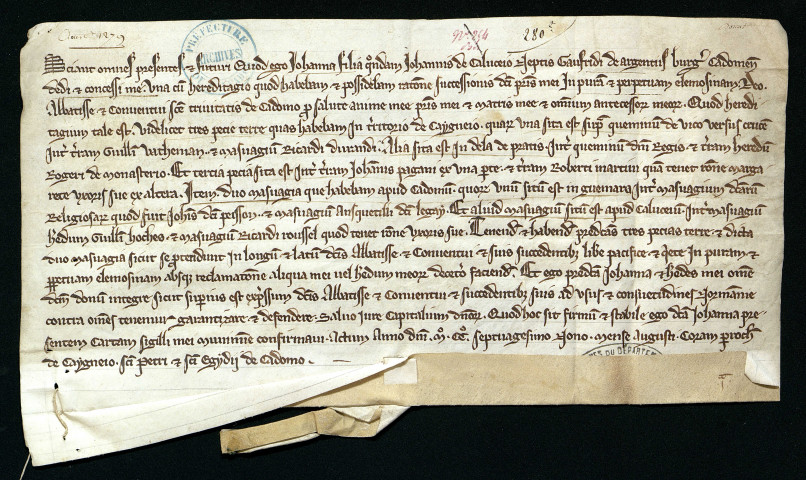 Aout 1279
92. 254
280
PREFECTURE
ARCHIVES
Sciant omnes presentes & futuri Quod ego Johanna filia qndam Johannis de Caluceio Neptis Gaufridi de argentiis burgs Cadomen
dedi & concessi me vna cu hereditagio quod habebam & possidebam ratone successionis dci pris mei In pura & perpetuam elemosinam Deo
Abbatisse & Conuentui sce trinitatis de Cadomo pro salute anime mee pris mei & matris mee & omnium antecessor meor. Quod heredi
tagium tale est. Videlicet tres pecie terre quas habebam in territorio de Caygneio. quar vna sita est supr queminum de vico versus cruce
Intr tram Guillmi Vatheman. & masuagiu Ricardi durandi. Alia sita est In dela de pratis. Intr queminum dni Regis & tram heredum
Rogeri de monasterio. Et tercia pecia sita est Intr tram Johannis pagani ex vna pte. & tram Roberti martin qua tenet rone marga
rete vxoris sue ex altera. Item. duo masuagia que habebam apud Cadomu. quor vnu situ est in guemara Intr masuagium dcaru
Religiosar quod fuit Johis dci pesson. & masuagiu Ansquetilli dci legay. Et aliud masuagiu situ est apud Caluceiu. Intr masuagiu
hedum Guillmi hoches. & masuagiu Ricardi roussel quod tenet rone vxoris sue. Tenend & habend predcas tres pecias terre. & dicta
duo masuagia sicut se protendunt in longu & latum dcis Abbatisse & Conuentui & suis succedentib libe pacifice & qete In puram &
perpetuam elemosinam absqz reclamatone aliqua mei vel hedum meor decetero faciend. Et ego predca Johanna & hedes mei ome
dcm donu integre sicut superius est expssum dcis Abbatisse & Conuentui & succedentib suis ad vsus & consuetudines Normanie
contra omes tenemur garantizare & defendere. Saluo iure Capitalium dnor. Quod vt hoc sit firmu & stabile ego dca Johanna pre
sentem Cartam sigilli mei munimine confirmaui. Actum Anno dni. M. CC. septuagesimo Nono. mense augusti. Coram proch
de Caygneio. sci Petri & sci Egydii de Cadomo.
DU DEPARTEM